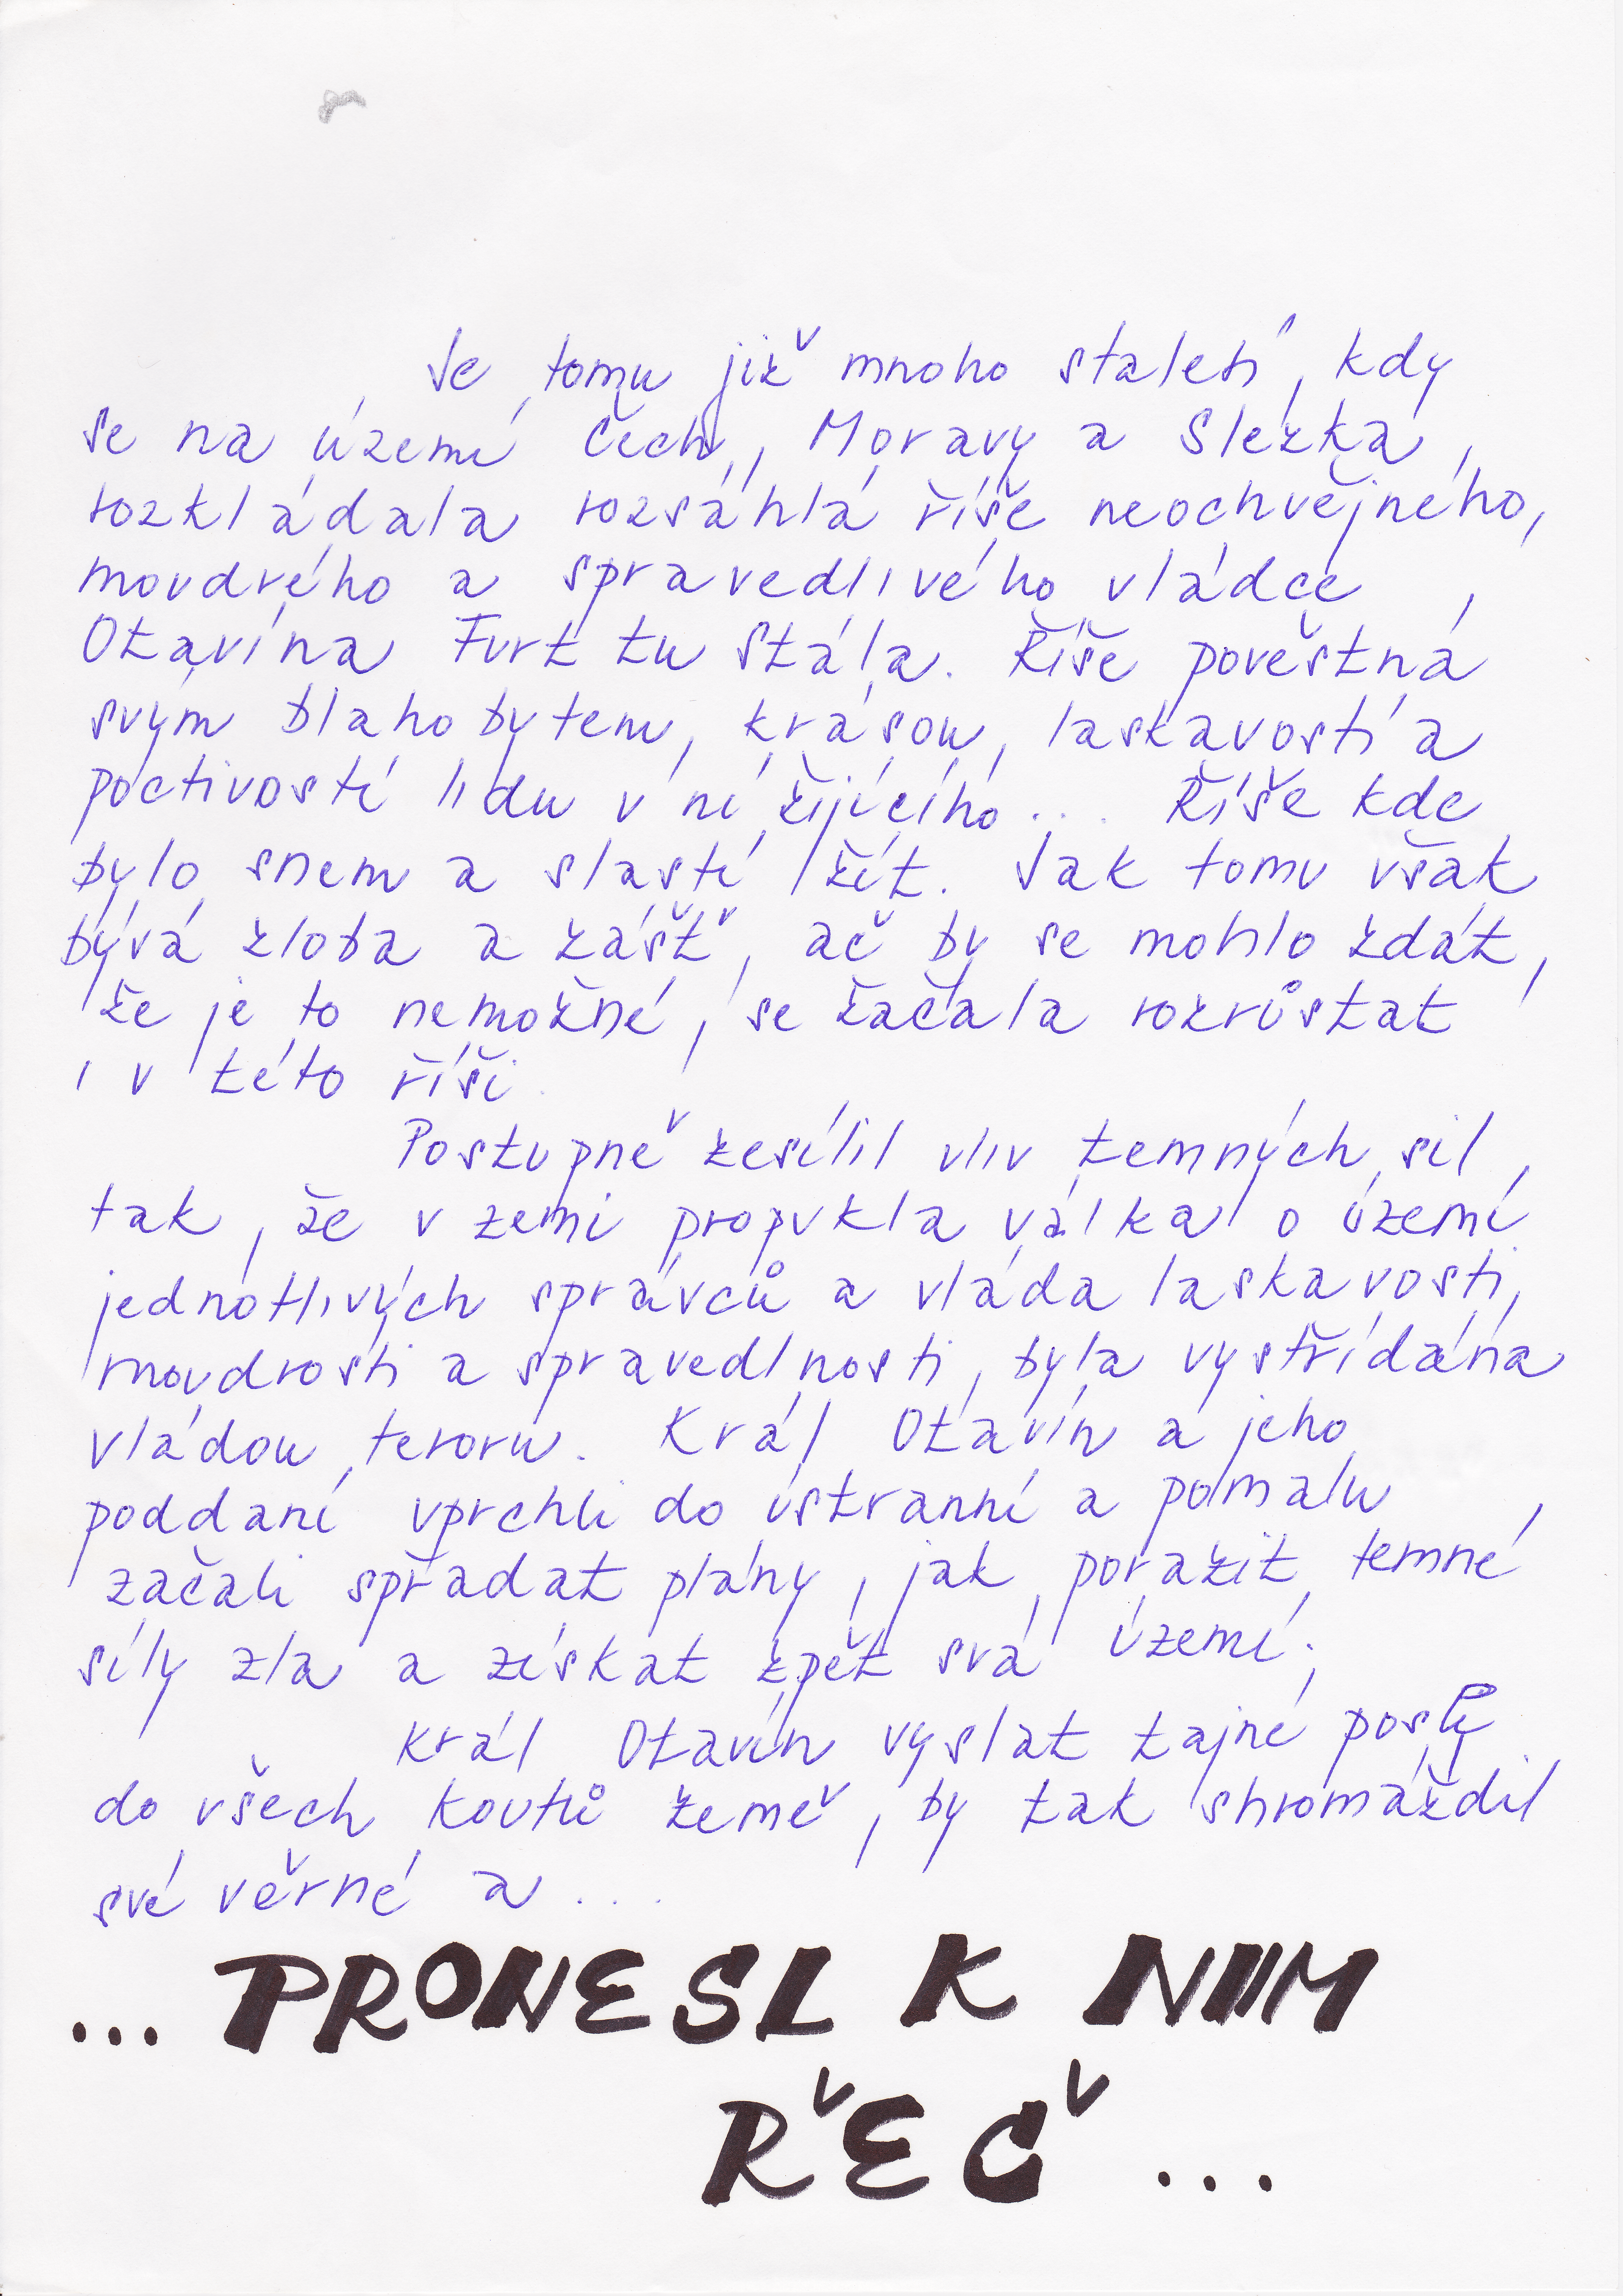 Je tomu již mnoho staletí, kdy
se na území Čech, Moravy a Slezka,
rozkládala rozsáhlá říše neochvějného,
moudrého a spravedlivého vládce
Otavína Furt tu stála. Říše pověstná
svým blahobytem, krásou, laskavostí a
poctivostí lidu v ní žijícího... Říše kde
bylo snem a slastí žít. Jak tomu však
bývá zloba a zášť, ač by se mohlo zdát,
že je to nemožné, se začala rozrůstat
i v této říši.
Postupně zesílil vliv temných sil
tak, že v zemi propukla válka o území
jednotlivých správců a vláda laskavosti,
moudrosti a spravedlnosti, byla vystřídána
vládou teroru. Král Otavín a jeho
poddaní uprchli do ústranní a pomalu
začali spřádat plány, jak porazit temné
síly zla a získat zpět svá území.
Král Otavín vyslat tajné posly
do všech koutů země, by tak shromáždil
své věrné a...
...PRONESL K NIIM
ŘEČ...